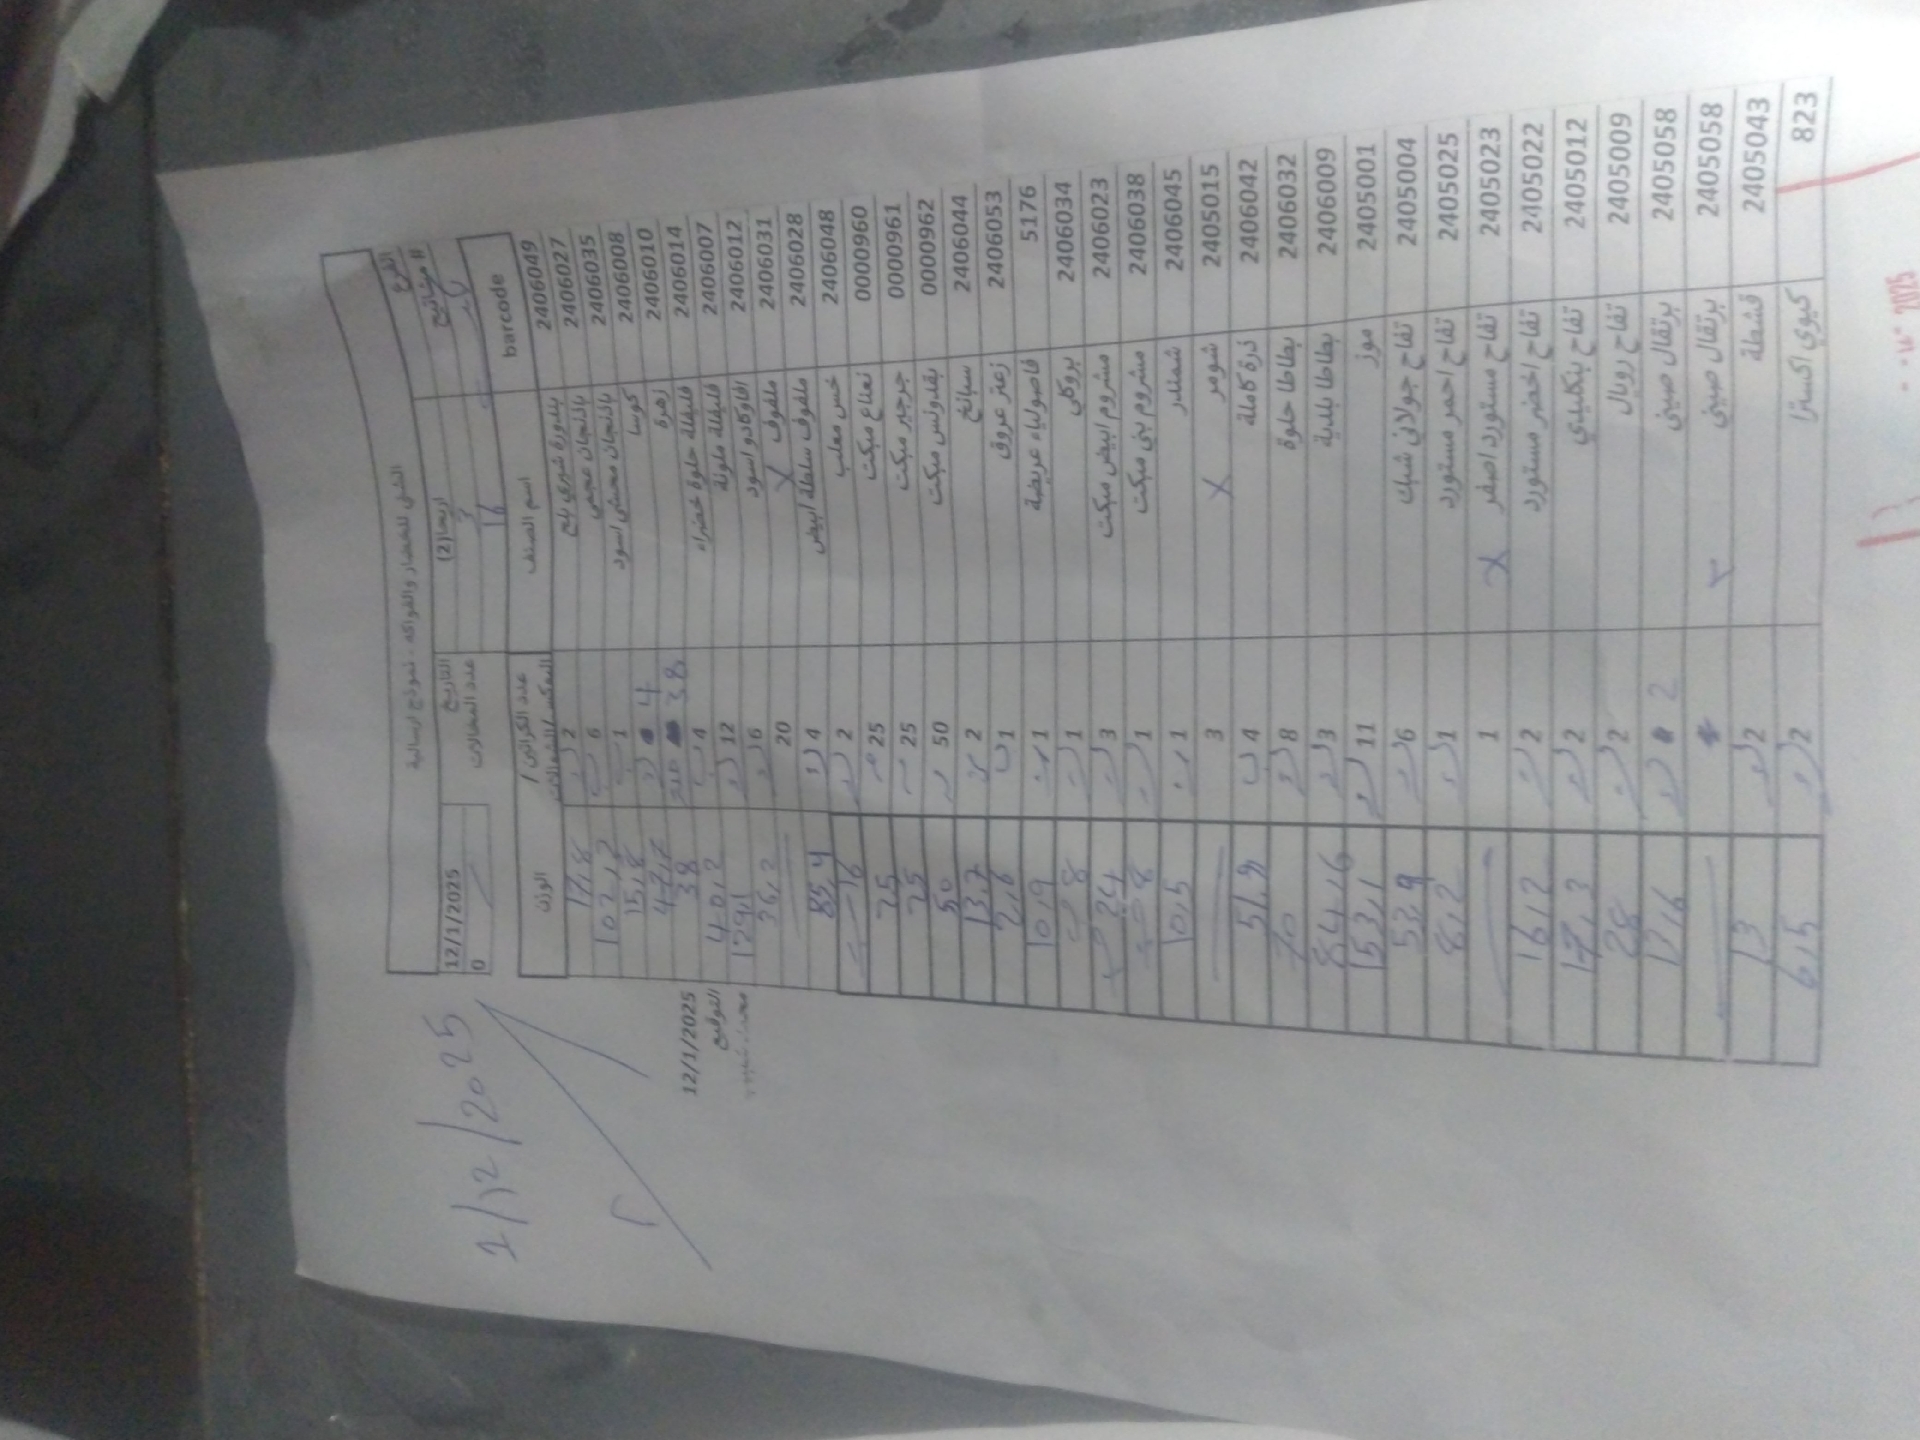 الشني للخضار والفواكه - نموذج ارسالية
الفرع اريحا(2) التاريخ 12/1/2025
# مشاتيح 3 عدد المحالات 0
16
barcode اسم الصنف عدد الكراتين / البوكس / الشوالات الوزن
2406049 بندورة شيري بلح 2 17,8
2406027 باذنجان عجمي 6 102,2
2406035 باذنجان محشي اسود 1 15,8
2406008 كوسا 4 47,7
2406010 زهرة 38 38
2406014 فليفلة حلوة خضراء 4 40,2
2406007 فليفلة ملونة 12 129,1
2406012 افاوكادو اسود 6 36,2
2406031 ملفوف X 20
2406028 ملفوف سلطة ابيض 4 85,4
2406048 خس معلب 2 16
0000960 نعناع مبكت 25 25
0000961 جرجير مبكت 25 25
0000962 بقدونس مبكت 50 50
2406044 سبانخ 2 13,7
2406053 زعتر عروق 1 2,6
5176 فاصولياء عريضة 1 10,9
2406034 بروكلي 1 8
2406023 مشروم ابيض مبكت 3 24
2406038 مشروم بني مبكت 1 8
2406045 شمندر 1 10,5
2405015 شومر X 3
2406042 ذرة كاملة 4 51,9
2406032 بطاطا حلوة 8 70
2406009 بطاطا بلدية 3 84,16
2405001 موز 11 153,1
2405004 تفاح جولاني شبك 6 53,9
2405025 تفاح احمر مستورد 1 8,2
2405023 تفاح مستورد اصفر X 1
2405022 تفاح اخضر مستورد 2 16,2
2405012 تفاح بنكليدي 2 17,3
2405009 تفاح رويال 2 28
2405058 برتقال صيني 2 17,6
2405058 برتقال صيني
2405043 قشطة 2 13
823 كيوي اكسترا 2 6,5
12/1/2025
التوقيع
1/12/2025
2025